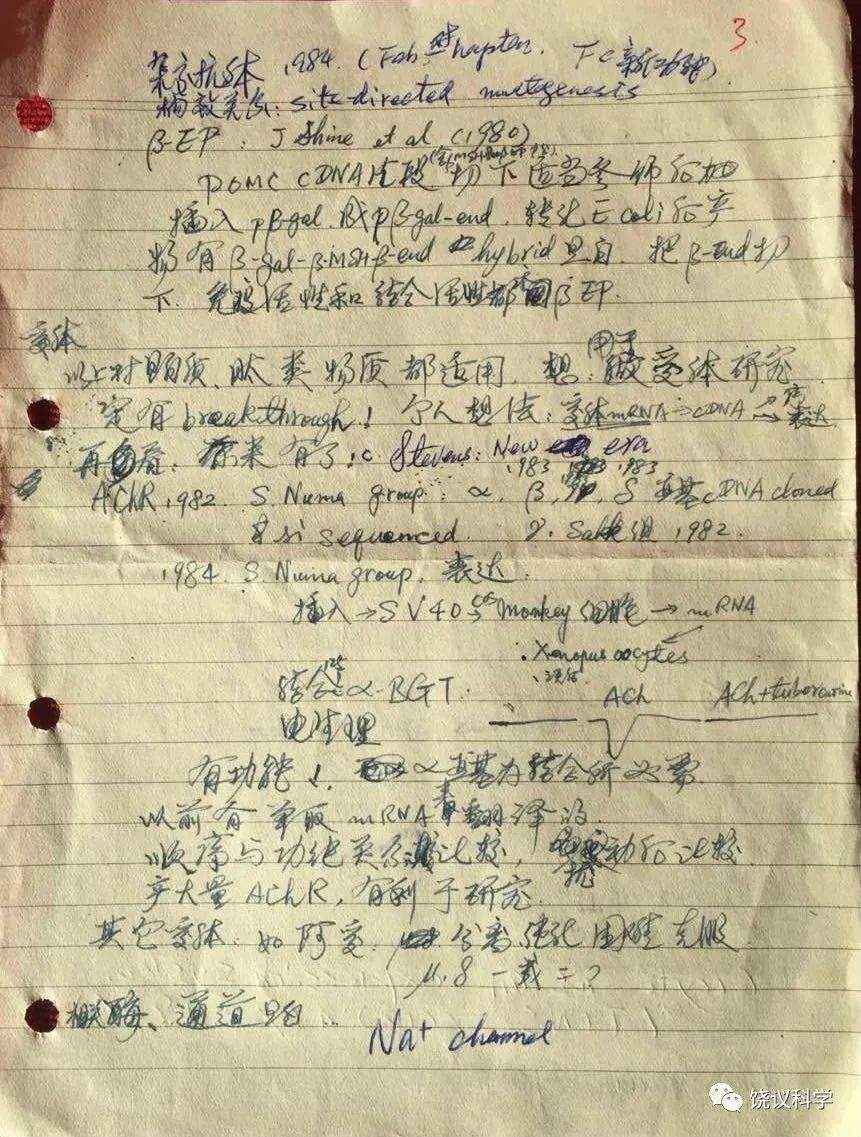 3.
杂交抗体 1984. (Fab 对 hapten. Fc 新功能)
构效关系: site-directed mutagenesis
β-EP : J Shine et al (1980)
POMC cDNA 片段 切下适当
插入 pβ-gal. 成 pβ-gal-end. 转化 E coli 的产
物有 β-gal-β-MSH-β-end hybrid 蛋白. 把 β-End 切
下. 免疫活性和结合活性都同 βEP.
受体
以上对蛋白质、肽类物质都适用. 想: 用于做受体研究
定有 breakthrough! 个人想法: 受体mRNA→cDNA→ 表达
再看: 原来有了! C Stevens: New era
1983 1983
AChR 1982. S. Numa group: α, β, δ 亚基cDNA cloned
sequenced. γ. 组 1982.
1984. S. Numa group. 表达.
插入→SV40→COS monkey 细胞→mRNA
Xenopus oocytes
结合: 125I α-BGT. ACh ACh+tubocurarine
电生理
有功能! α亚基为结合所必需.
以前有单取 mRNA 翻译的.
顺序与功能关系比较, 动的比较
产大量 AChR, 有利于研究.
其它受体: 如阿受. 分离纯化困难克服
μ. δ 一或二?
相关酶、通道蛋白...
Na+ channel
饶议科学